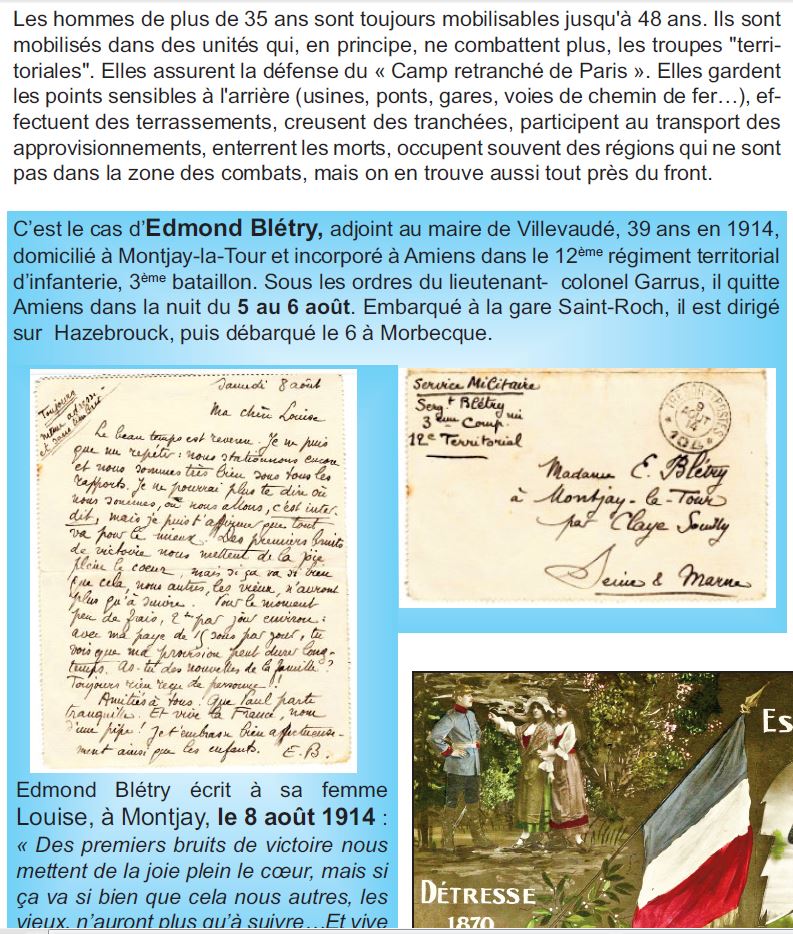 Les hommes de plus de 35 ans sont toujours mobilisables jusqu'à 48 ans. Ils sont
mobilisés dans des unités qui, en principe, ne combattent plus, les troupes "terri-
toriales". Elles assurent la défense du « Camp retranché de Paris ». Elles gardent
les points sensibles à l'arrière (usines, ponts, gares, voies de chemin de fer…), ef-
fectuent des terrassements, creusent des tranchées, participent au transport des
approvisionnements, enterrent les morts, occupent souvent des régions qui ne sont
pas dans la zone des combats, mais on en trouve aussi tout près du front.
C'est le cas d'Edmond Blétry, adjoint au maire de Villevaudé, 39 ans en 1914,
domicilié à Montjay-la-Tour et incorporé à Amiens dans le 12ème régiment territorial
d'infanterie, 3ème bataillon. Sous les ordres du lieutenant- colonel Garrus, il quitte
Amiens dans la nuit du 5 au 6 août. Embarqué à la gare Saint-Roch, il est dirigé
sur Hazebrouck, puis débarqué le 6 à Morbecque.
Toujours
même adresse
et sans timbre
Samedi 8 août
Ma chère Louise
Le beau temps est revenu. Je ne puis
que me répéter : nous stationnons encore
et nous sommes très bien sous tous les
rapports. Je ne pourrai plus te dire où
nous sommes, où nous allons, c'est inter
dit, mais je puis t'affirmer que tout
va pour le mieux. Des premiers bruits
de victoire nous mettent de la joie
plein le cœur, mais si ça va si bien
que cela nous autres, les vieux, n'auront
plus qu'à suivre. Pour le moment
peu de frais, 2f par jour environ :
avec ma paye de 15 sous par jour, tu
vois que ma provision peut durer long-
temps. As-tu des nouvelles de la famille ?
Toujours rien reçu de personne !!
Amitiés à tous. Que Paul parte
tranquille. Et vive la France, nom
d'une pipe ! Je t'embrasse bien affectueuse-
ment ainsi que les enfants. E.B.
Service Militaire
Sergt Blétry
3eme Comp.
12e Territorial
TRESOR ET POSTES
9
AOUT
14
Madame E. Blétry
à Montjay-la-Tour
par Claye Souilly
Seine & Marne
Edmond Blétry écrit à sa femme
Louise, à Montjay, le 8 août 1914 :
« Des premiers bruits de victoire nous
mettent de la joie plein le cœur, mais si
ça va si bien que cela nous autres, les
vieux, n'auront plus qu'à suivre…Et vive
Es
DÉTRESSE
1870